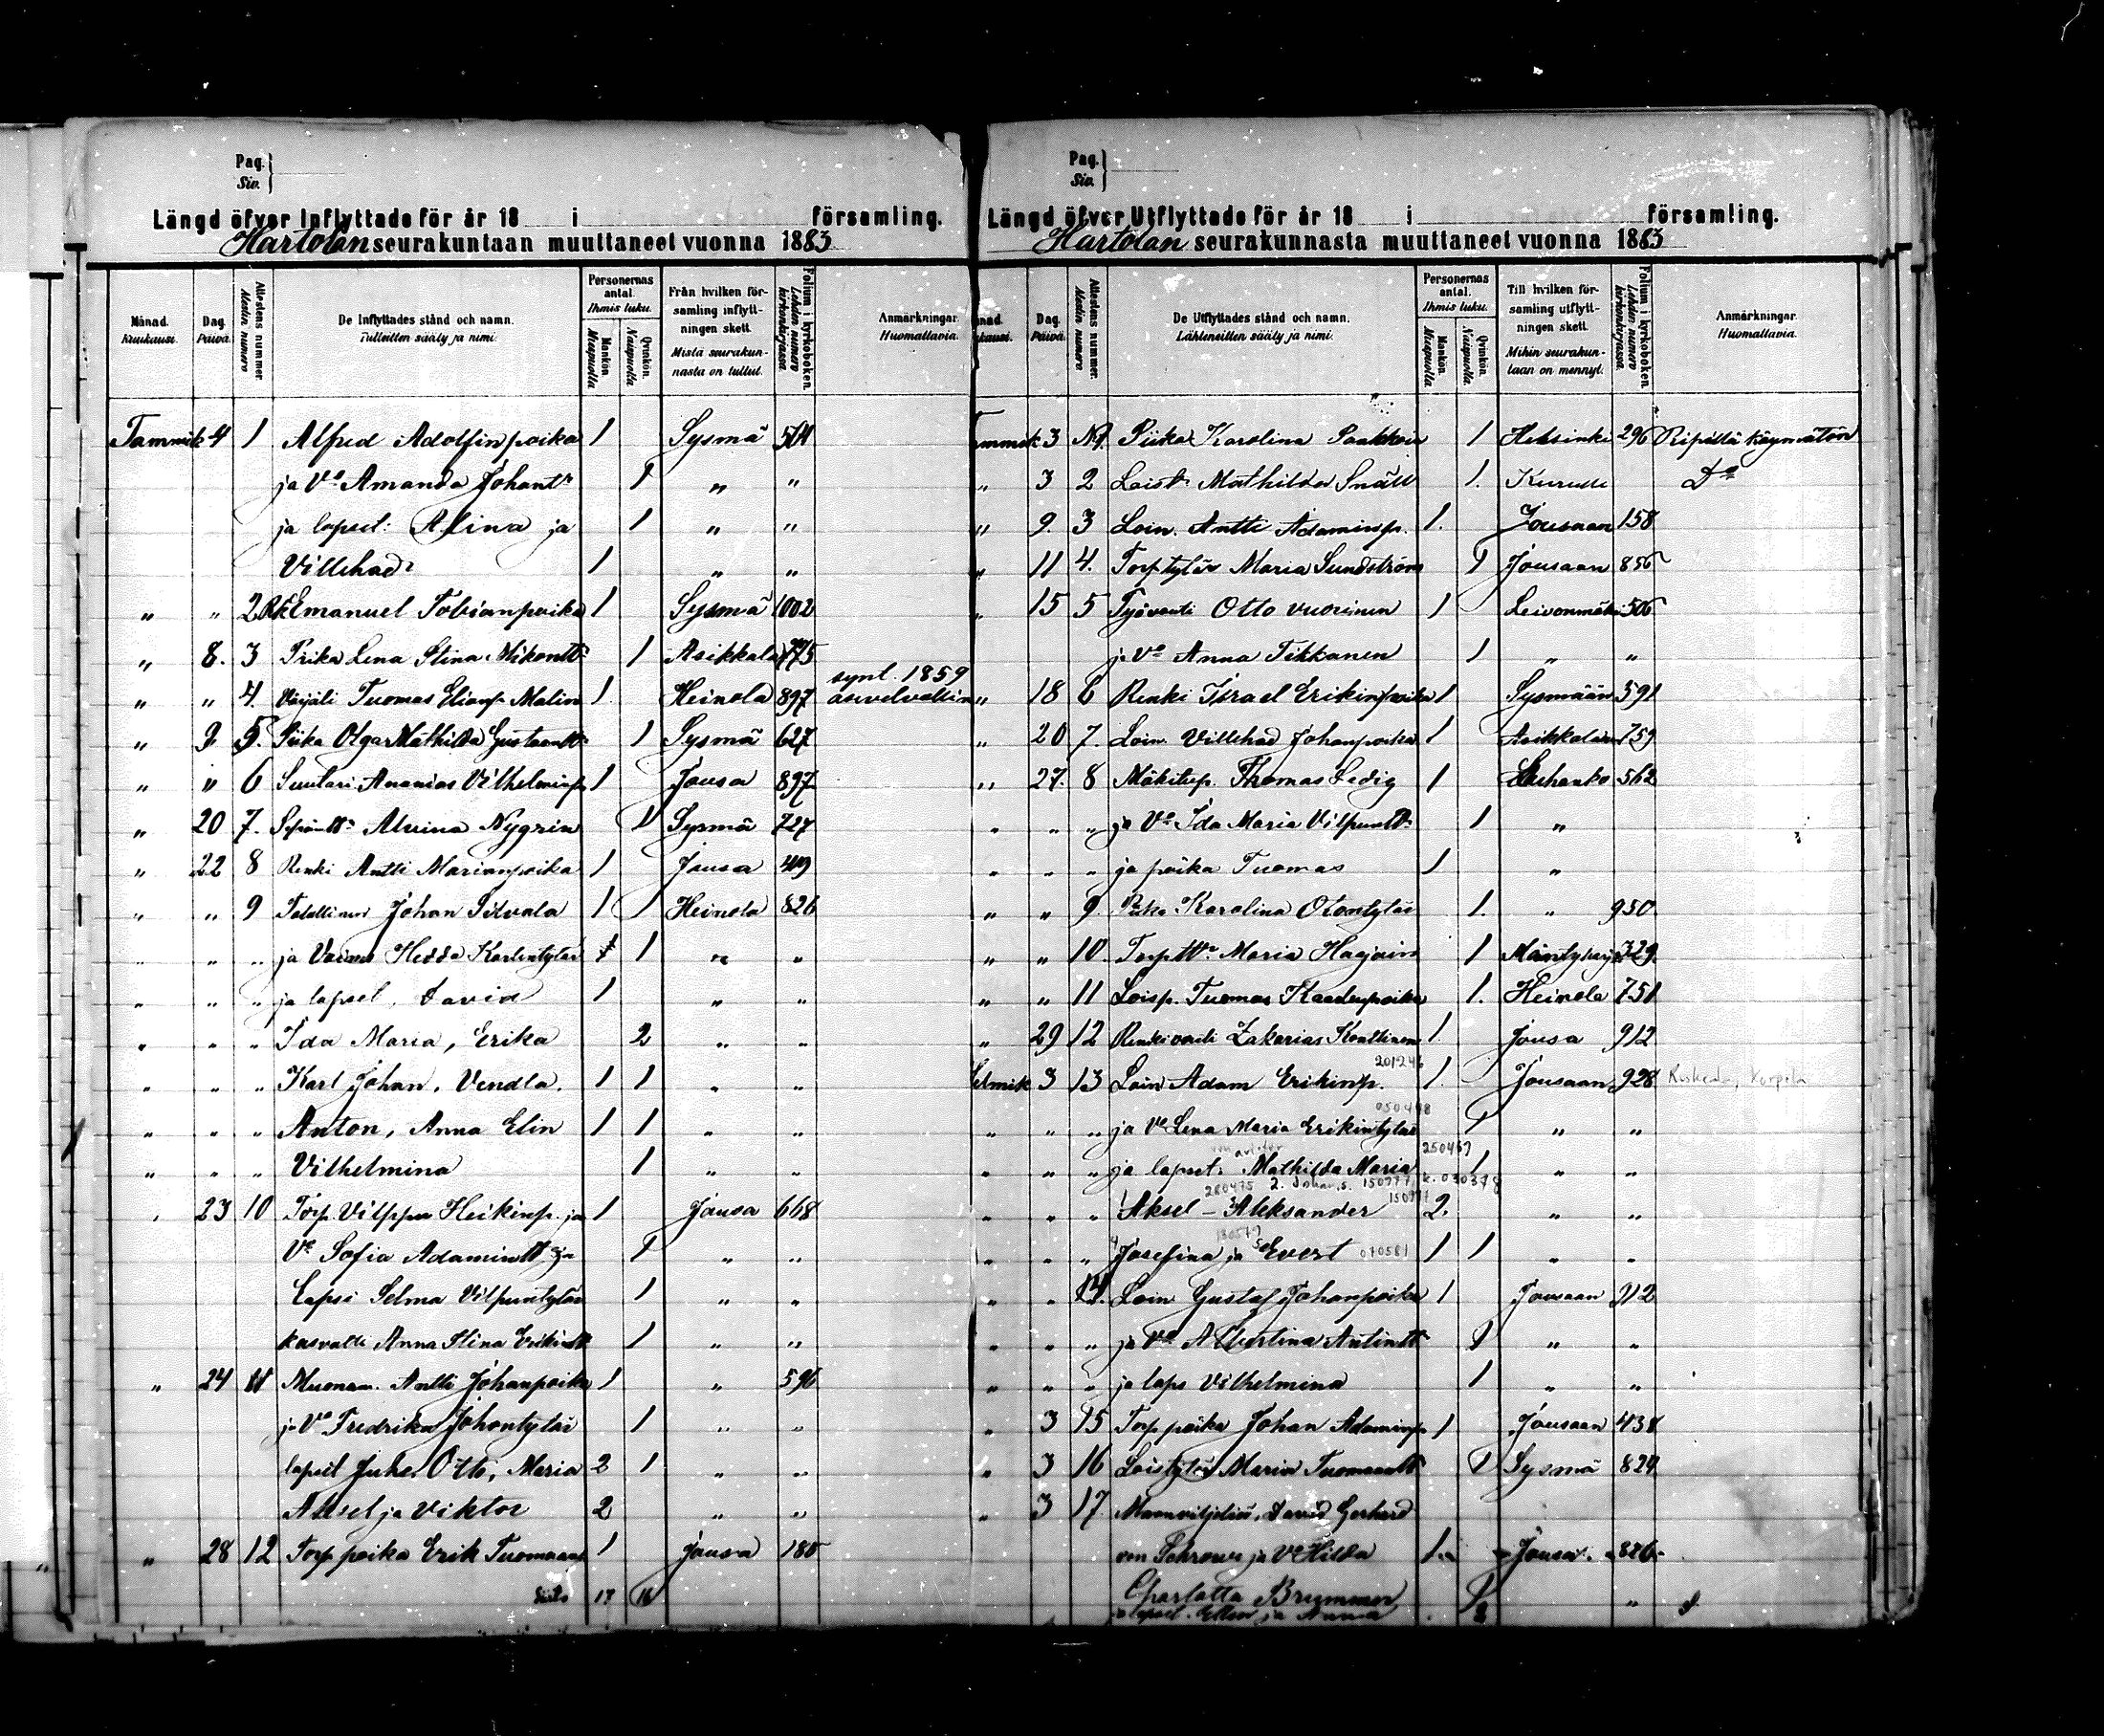 Pag.
Siv.
Längd öfver Inflyttade för år 18 i församling.
Hartolan seurakuntaan muuttaneet vuonna 1883
Månad. Kuukausi.
Dag. Päivä.
Attestens nummer. Atestin numero
De Inflyttades stånd och namn. Tulleitten sääty ja nimi.
Personernas antal. Ihmis luku.
Mankön. Miespuolia
Qvinkön. Naispuolia
Från hvilken församling inflyttningen skett. Mistä seurakunnasta on tullut.
Folium i kyrkoboken. Lehden numero kirkonkirjassa.
Anmärkningar. Huomattavia.
Tammik 4 1 Alfred Adolfinpoika 1 Sysmä 504
ja Vo Amanda Johantr 1 " "
ja lapset: Alina ja 1 " "
Villehad 1 " "
" " 2 Emanuel Tobianpoika 1 Sysmä 1002
" 8. 3 Piika Lena Stina Mikontr 1 Asikkala 775
" " 4. Värjäli Tuomas Eliasp. Malin 1 Heinola 897 synt. 1859 asevelvollinen
" 9 5. Piika Olga Mathilda Gustaantr 1 Sysmä 627
" " 6 Suutari Ananias Vilhelminp. 1 Jousa 897
" 20 7. Alvina Nygrin 1 Sysmä 727
" 22 8 Renki Antti Marianpoika 1 Jousa 419
" " 9 Talollinen Johan Silvala 1 1 Heinola 826
" " " ja Vaimo Hedda Karlentytär 1 1 " "
" " " ja lapset, David 1 " "
" " " Ida Maria, Erika 2 " "
" " " Karl Johan, Vendla, 1 1 " "
" " " Anton, Anna Elin 1 1 " "
" " " Vilhelmina 1 " "
" 23 10 Torp. Vilppu Heikinp. ja 1 Jousa 668
Vo Sofia Adamintr ja 1 " "
Lapsi Selma Vilpuntytär 1 " "
kasvatti Anna Stina Erikintr 1 " "
" 24 11 Muonam. Antti Johanpoika 1 " 596
ja Vo Fredrika Johantytär 1 " "
lapset Juho Otto, Maria 2 1 " "
Aksel ja Viktor 2 " "
" 28 12 Torp. poika Erik Tuomaanp. 1 Jousa 180
Siirto 17 16
Pag.
Siv.
Längd öfver Utflyttade för år 18 i församling.
Hartolan seurakunnasta muuttaneet vuonna 1883
Dag. Päivä.
Attestens nummer. Atestin numero
De Utflyttades stånd och namn. Lähteneitten sääty ja nimi.
Personernas antal. Ihmis luku.
Mankön. Miespuolia
Qvinkön. Naispuolia
Till hvilken församling utflyttningen skett. Mihin seurakuntaan on mennyt.
Folium i kyrkoboken. Lehden numero kirkonkirjassa.
Anmärkningar. Huomattavia.
Tammik 3 N1. Piika Karolina Paakkoin 1 Helsinki 296 Ripillä käymätön
" 3 2 Loistr Mathilda Snäll 1. Do
" 9. 3 Loin. Antti Adaminp. 1. Jousaan 158
" 11 4. Torp tytär Maria Sundström 1 Jousaan 856
" 15 5 Työvanti Otto Vuorinen 1 Leivonmäki 506
ja Vo Anna Tikkanen 1 " "
" 18 6 Renki Israel Erikinpoika 1 Sysmään 591
" 20 7. Loin. Villehad Johanpoika 1 Asikkalaan 759
" 27. 8 Mäkitup. Thomas Ledig 1 Luhanko 562
" " " ja Vo Ida Maria Vilpuntr 1 "
" " " ja poika Tuomas 1 "
" " 9. Piika Karolina Otontytär 1. " 950
" " 10. Torp tr Maria Hagoin 1 Mäntyharju 329
" " 11 Loisp. Tuomas Kaadenpoika 1. Heinola 751
" 29 12 Renkivouti Zakarias Konttinen 1. Jousa 912
Helmik 3 13 Loin Adam Erikinp. 201246 1. Jousaan 928 Koskela, Korpela
" " " ja Vo Lena Maria Erikintytär 050448 1 " "
" " " ja lapset: Mathilda Maria 250469 1 " "
280475 2. Johan s. 150977, k. 030378
" " " Aksel - Aleksander 150977 2. " "
130579
" " " 4 Josefina ja 5 Evert 070581 1 1 " "
" " 14. Loin Gustaf Johanpoika 1 Jousaan 912
" " " ja Vo Albertina Antintr 1 " "
" " " ja laps Vilhelmina 1 " "
" 3 15 Torp poika Johan Adaminp. 1 Jousaan 438
" 3 16 Loistytär Maria Tuomaantr 1 Sysmä 824
" 3 17 Maanviljeliä, David Gerhard
von ja Vo Hilda 1. Jousa. 886
Charlotta Brummer 1 "
lapset. Ellen ja Anna 2